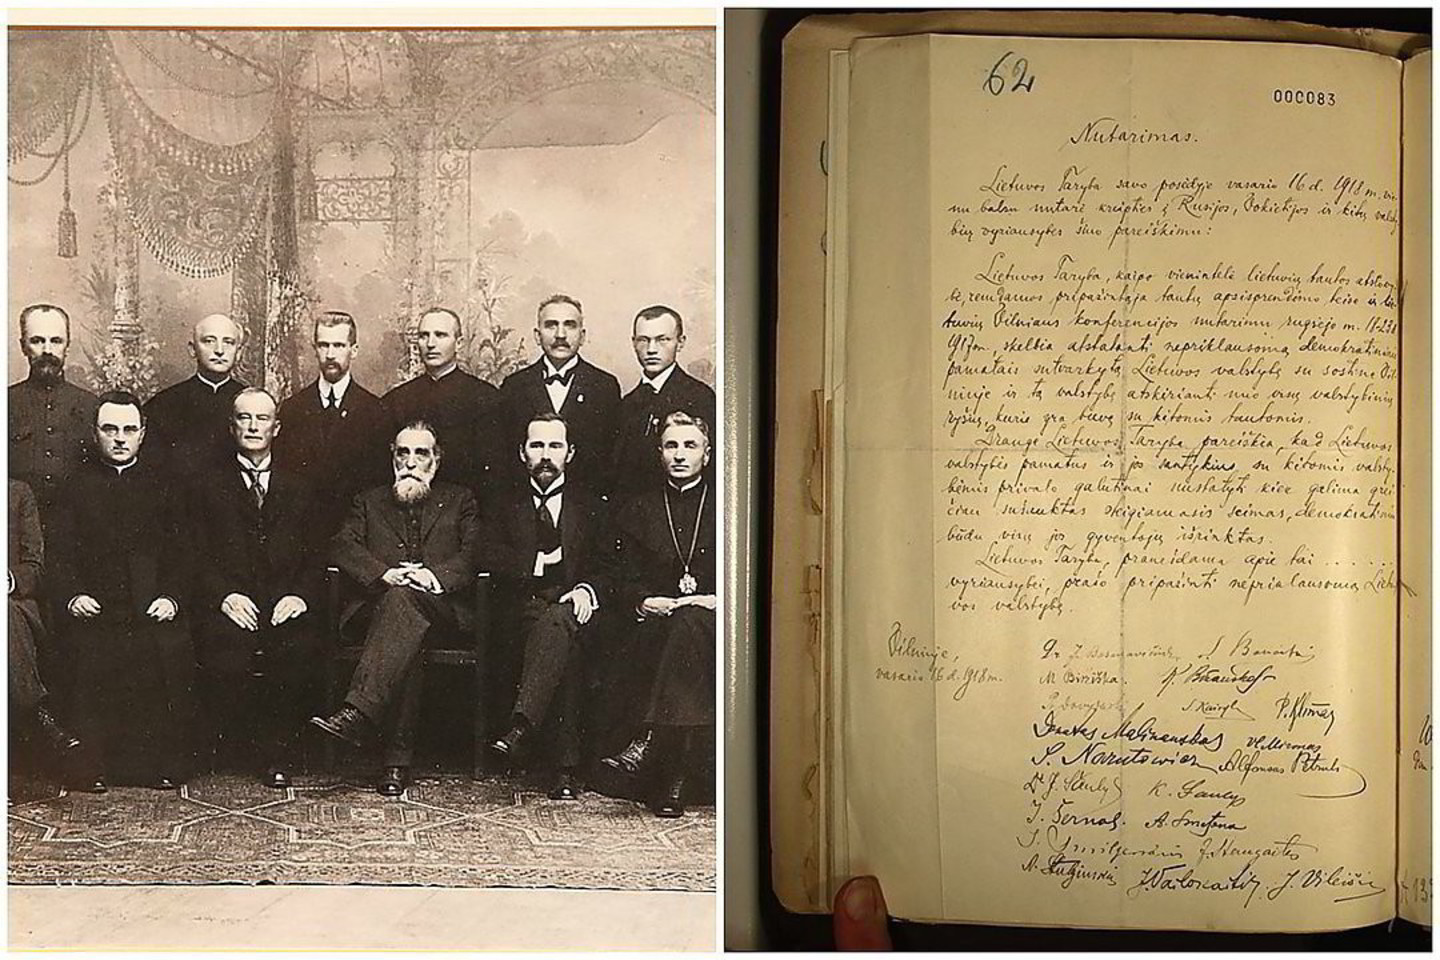 62
000083
Nutarimas.
Lietuvos Taryba savo posėdyje vasario 16 d. 1918 m. vie-
nu balsu nutarė kreipties į Rusijos, Vokietijos ir kitų valsty-
bių vyriausybes šiuo pareiškimu:
Lietuvos Taryba, kaipo vienintelė lietuvių tautos atstovy-
bė, remdamos pripažintąja tautų apsisprendimo teise ir lie-
tuvių Vilniaus konferencijos nutarimu rugsėjo m. 18-23 d.
1917 m., skelbia atstatanti nepriklausomą demokratiniais
pamatais sutvarkytą Lietuvos valstybę su sostine Vil-
niuje ir tą valstybę atskirianti nuo visų valstybinių
ryšių, kurie yra buvę su kitomis tautomis.
Drauge Lietuvos Taryba pareiškia, kad Lietuvos
valstybės pamatus ir jos santykius su kitomis valsty-
bėmis privalo galutinai nustatyti kiek galima grei-
čiau sušauktas steigiamasis seimas, demokratiniu
būdu visų jos gyventojų išrinktas.
Lietuvos Taryba, pranešdama apie tai . . . . .
vyriausybei, prašo pripažinti nepriklausomą Lietu-
vos valstybę.
Vilniuje,
vasario 16 d. 1918 m.
Dr. J. Basanavičius S. Banaitis
M. Biržiška. K. Bizauskas
S. Kairys P. Klimas
Donatas Malinauskas Vl. Mironas
S. Narutowicz Alfonsas Petrulis
Dr J. Šaulys K. Šaulys
J. Šernas. A. Smetona
J. Smilgevičius J. Staugaitis
A. Stulginskis J. Vailokaitis. J. Vileišis